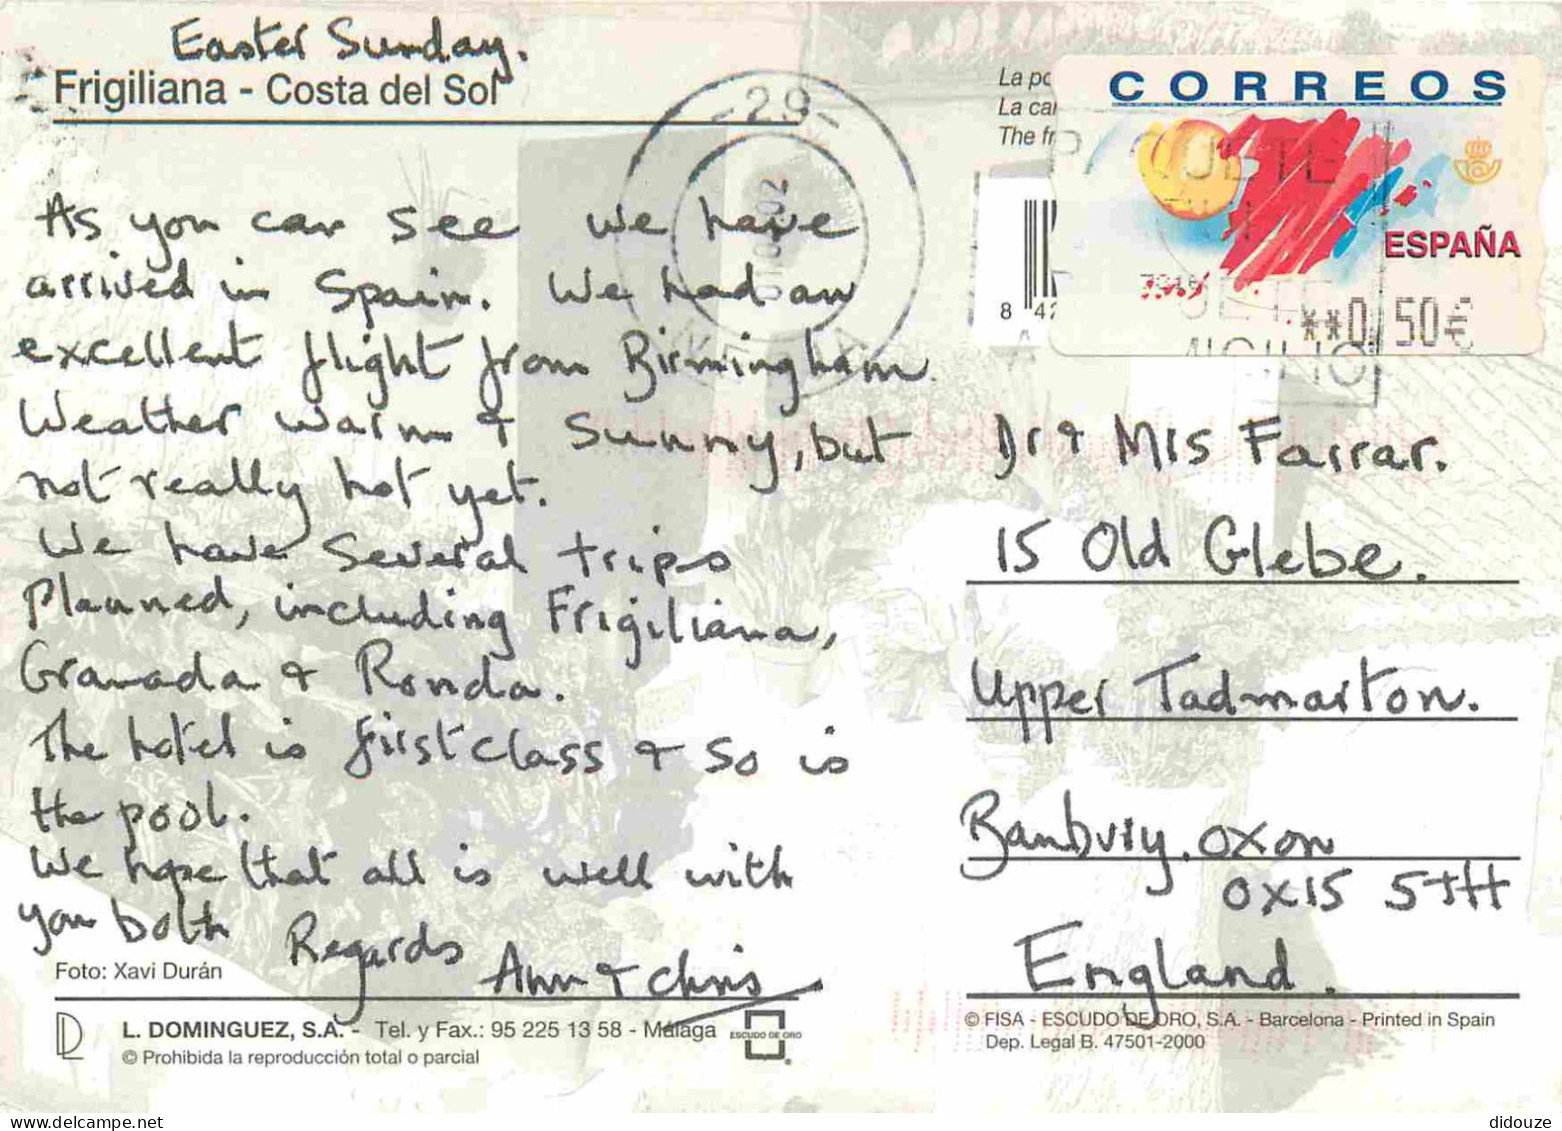 Easter Sunday.
Frigiliana - Costa del Sol
As you can see we have
arrived in Spain. We had an
excellent flight from Birmingham.
Weather warm & sunny, but
not really hot yet.
We have several trips
planned, including Frigiliana,
Granada & Ronda.
The hotel is first class & so is
the pool.
We hope that all is well with
you both
Regards Ann & Chris
Foto: Xavi Durán
L. DOMINGUEZ, S.A. - Tel. y Fax.: 95 225 13 58 - Málaga
© Prohibida la reproducción total o parcial
ESCUDO DE ORO
-29-
02
La
La
The
8 42
CORREOS
ESPAÑA
**0,50€
Dr & Mrs Farrar.
15 Old Glebe.
Upper Tadmarton.
Banbury. Oxon
OX15 5TH
England.
© FISA - ESCUDO DE ORO, S.A. - Barcelona - Printed in Spain
Dep. Legal B. 47501-2000
delcampe.net
didouze